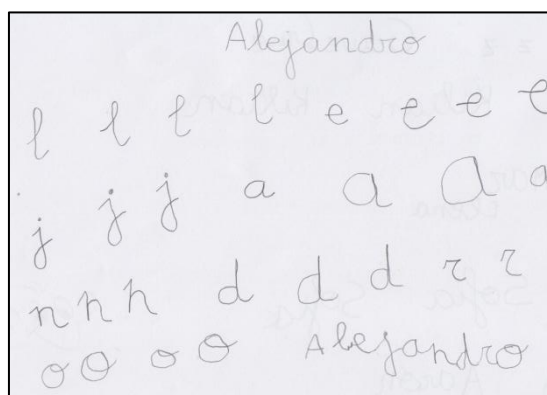 Alejandro
l l l l e e e e
j j j a a a a
n n n d d d r r
o o o o Alejandro